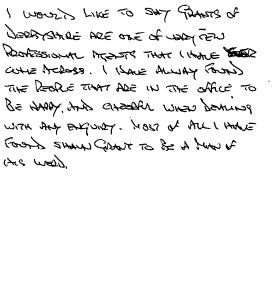 I WOULD LIKE TO SAY GRANTS OF
DERBYSHIRE ARE ONE OF VERY FEW
PROFESSIONAL AGENTS THAT I HAVE
COME ACROSS. I HAVE ALWAY FOUND
THE PEOPLE THAT ARE IN THE OFFICE. TO
BE HAPPY, AND CHEERFUL WHEN DEALING
WITH ANY ENQUIRY. MOST OF ALL I HAVE
FOUND SHAUN GRANT TO BE A MAN OF
HIS WORD.